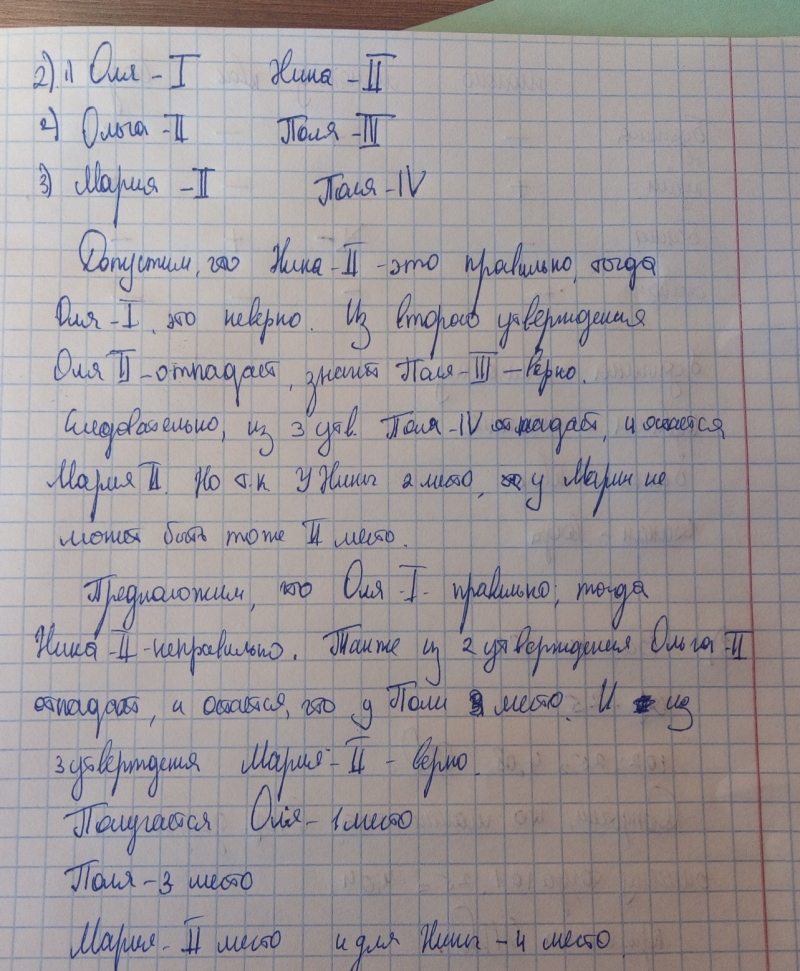 2) 1) Оля - I Нина - II
2) Ольга - II Поля - III
3) Мария - II Поля - IV
Допустим, что Нина - II - это правильно, тогда
Оля - I, это неверно. Из второго утверждения
Оля II - отпадает, значит Поля - III - верно.
Следовательно, из 3 утв. Поля - IV отпадает, и остается
Мария II. Но т.к у Нины 2 место, у Марии не
может быть тоже II место.
Предположим, что Оля - I - правильно; тогда
Нина - II - неправильно. Также из 2 утверждения Ольга - II
отпадает, и остается, что у Поли 3 место. И из
3 утверждения Мария - II - верно.
Получается Оля - 1 место
Поля - 3 место
Мария - II место и для Нины - 4 место.